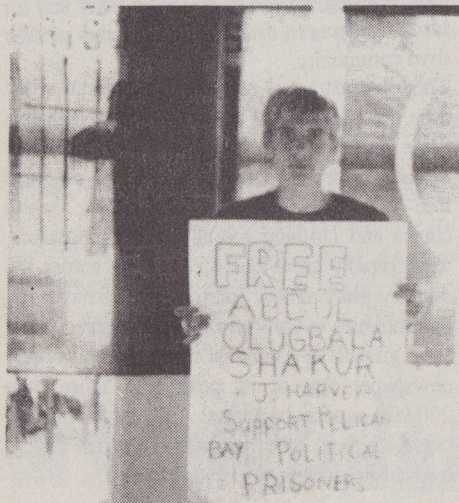 FREE
ABDUL
OLUGBALA
SHAKUR
- J. HARVEY -
SUPPORT PELICAN
BAY POLITICAL
PRISONERS